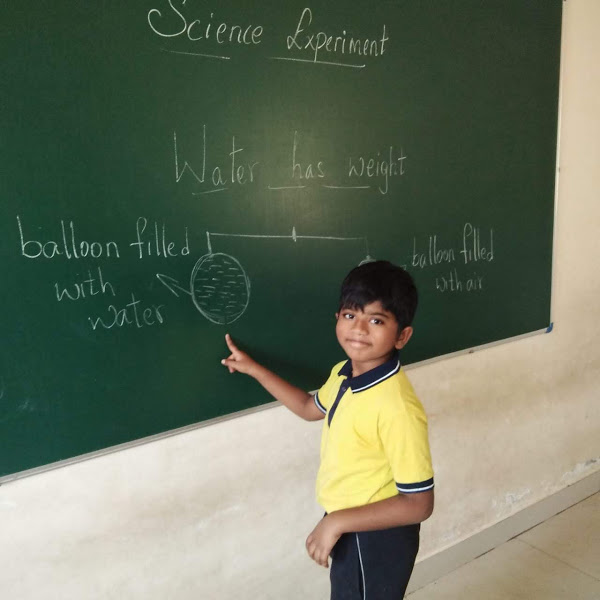 Science Experiment
Water has weight
balloon filled
with
water
balloon filled
with air